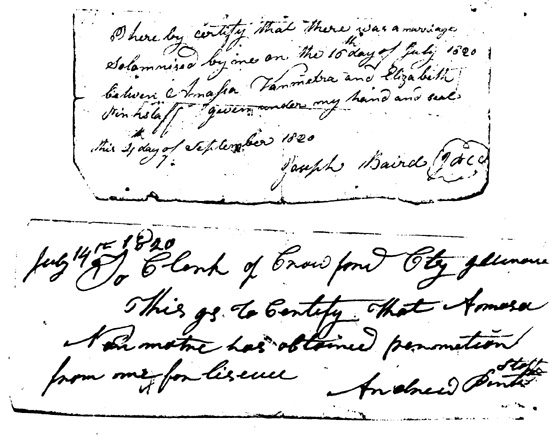 I here by certify that there was a marriage
Solamnised by me on the 16th day of July 1820
between Amasa Vanmetra and Elizabeth
Pinkstaff given under my hand and seal
this 4th day of September 1820
Joseph Baird
July 14th 1820
To Clerk of Crawford Cty
This is to Certify That Amasa
Van matre has obtained permetion
from me for lisence
Andrew Pinkstaff